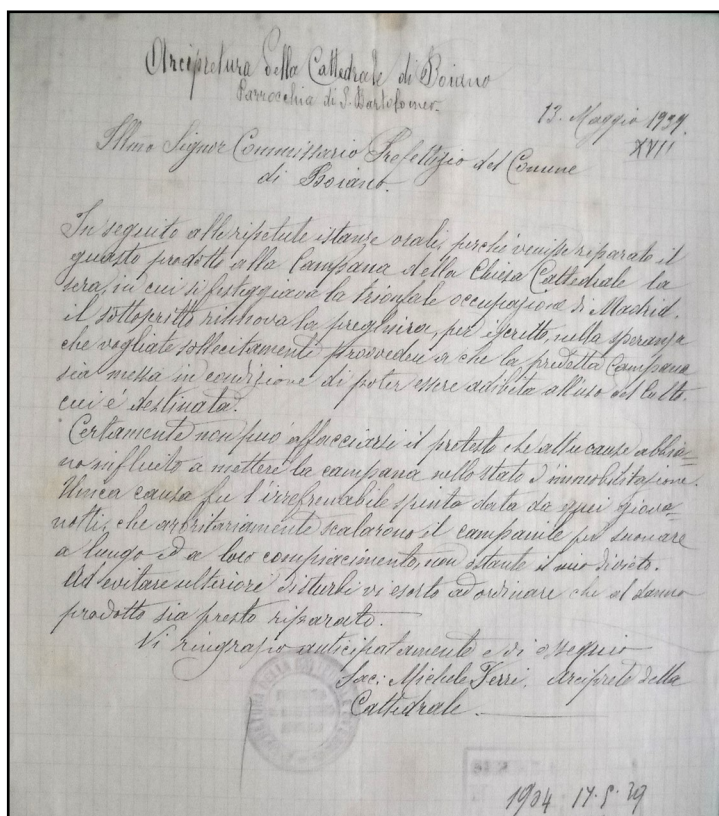 Arcipretura della Cattedrale di Boiano
Parrocchia di S. Bartolomeo.
13. Maggio 1939.
XVII
Ill.mo Signor Commissario Prefettizio del Comune
di Boiano.
In seguito alle ripetute istanze orali, perché venisse riparato il
guasto prodotto alla Campana della Chiesa Cattedrale la
sera, in cui si festeggiava la trionfale occupazione di Madrid,
il sottoscritto rinnova la preghiera, per iscritto, nella speranza
che vogliate sollecitamente provvedere a che la predetta Campana
sia messa in condizione di poter essere adibita all'uso del Culto
cui è destinata.
Certamente non può affacciarsi il pretesto che altre cause abbia=
no influito a mettere la campana nello stato d'immobilitazione.
Unica causa fu l'irrefrenabile spinta data da quei giova=
notti, che arbitrariamente scalarono il campanile per suonare
a lungo ed a loro compiacimento, non ostante il mio divieto.
Ad evitare ulteriori disturbi vi esorto ad ordinare che al danno
prodotto sia presto riparato.
Vi ringrazio anticipatamente e vi ossequio
Sac: Michele Ferri. Arciprete della
Cattedrale.
1904 17.5.39